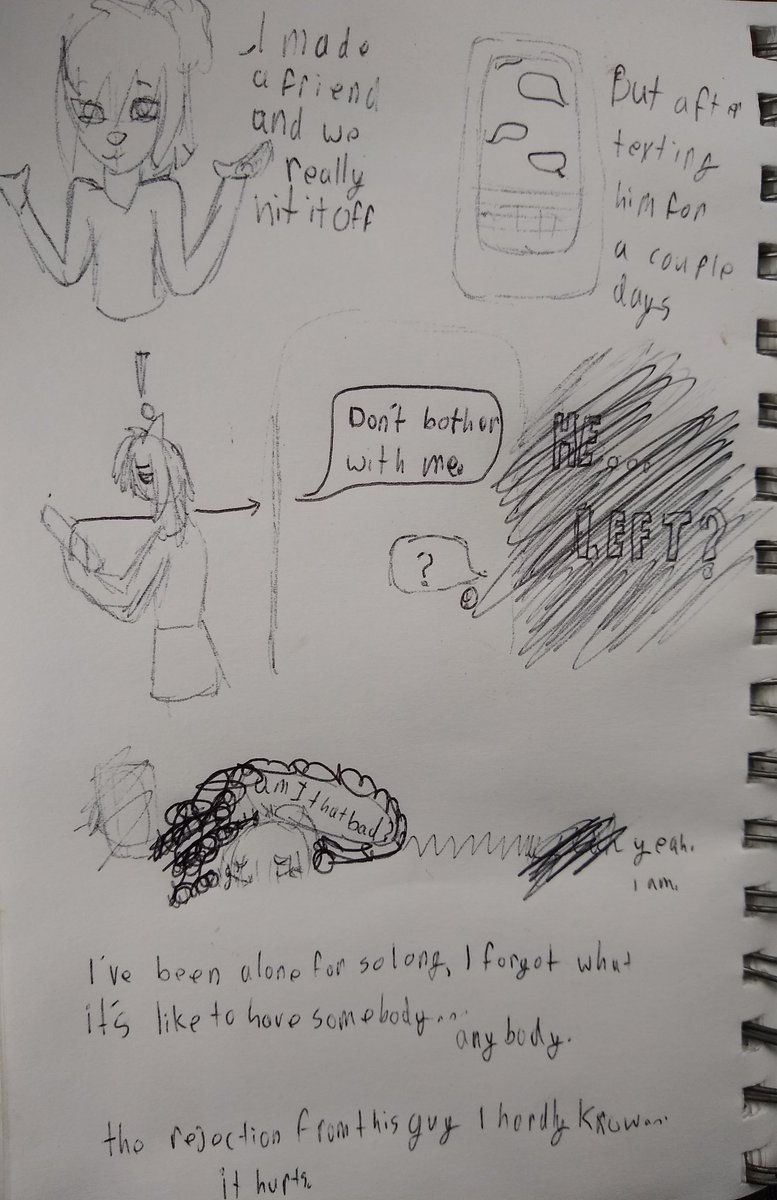 I made
a friend
and we
really
hit it off
But after
texting
him for
a couple
days
!
Don't bother
with me.
HE...
LEFT?
?
am I that bad?
yeah.
i am.
I've been alone for so long, I forgot what
it's like to have somebody...
any body.
the rejection from this guy I hardly know...
it hurts.